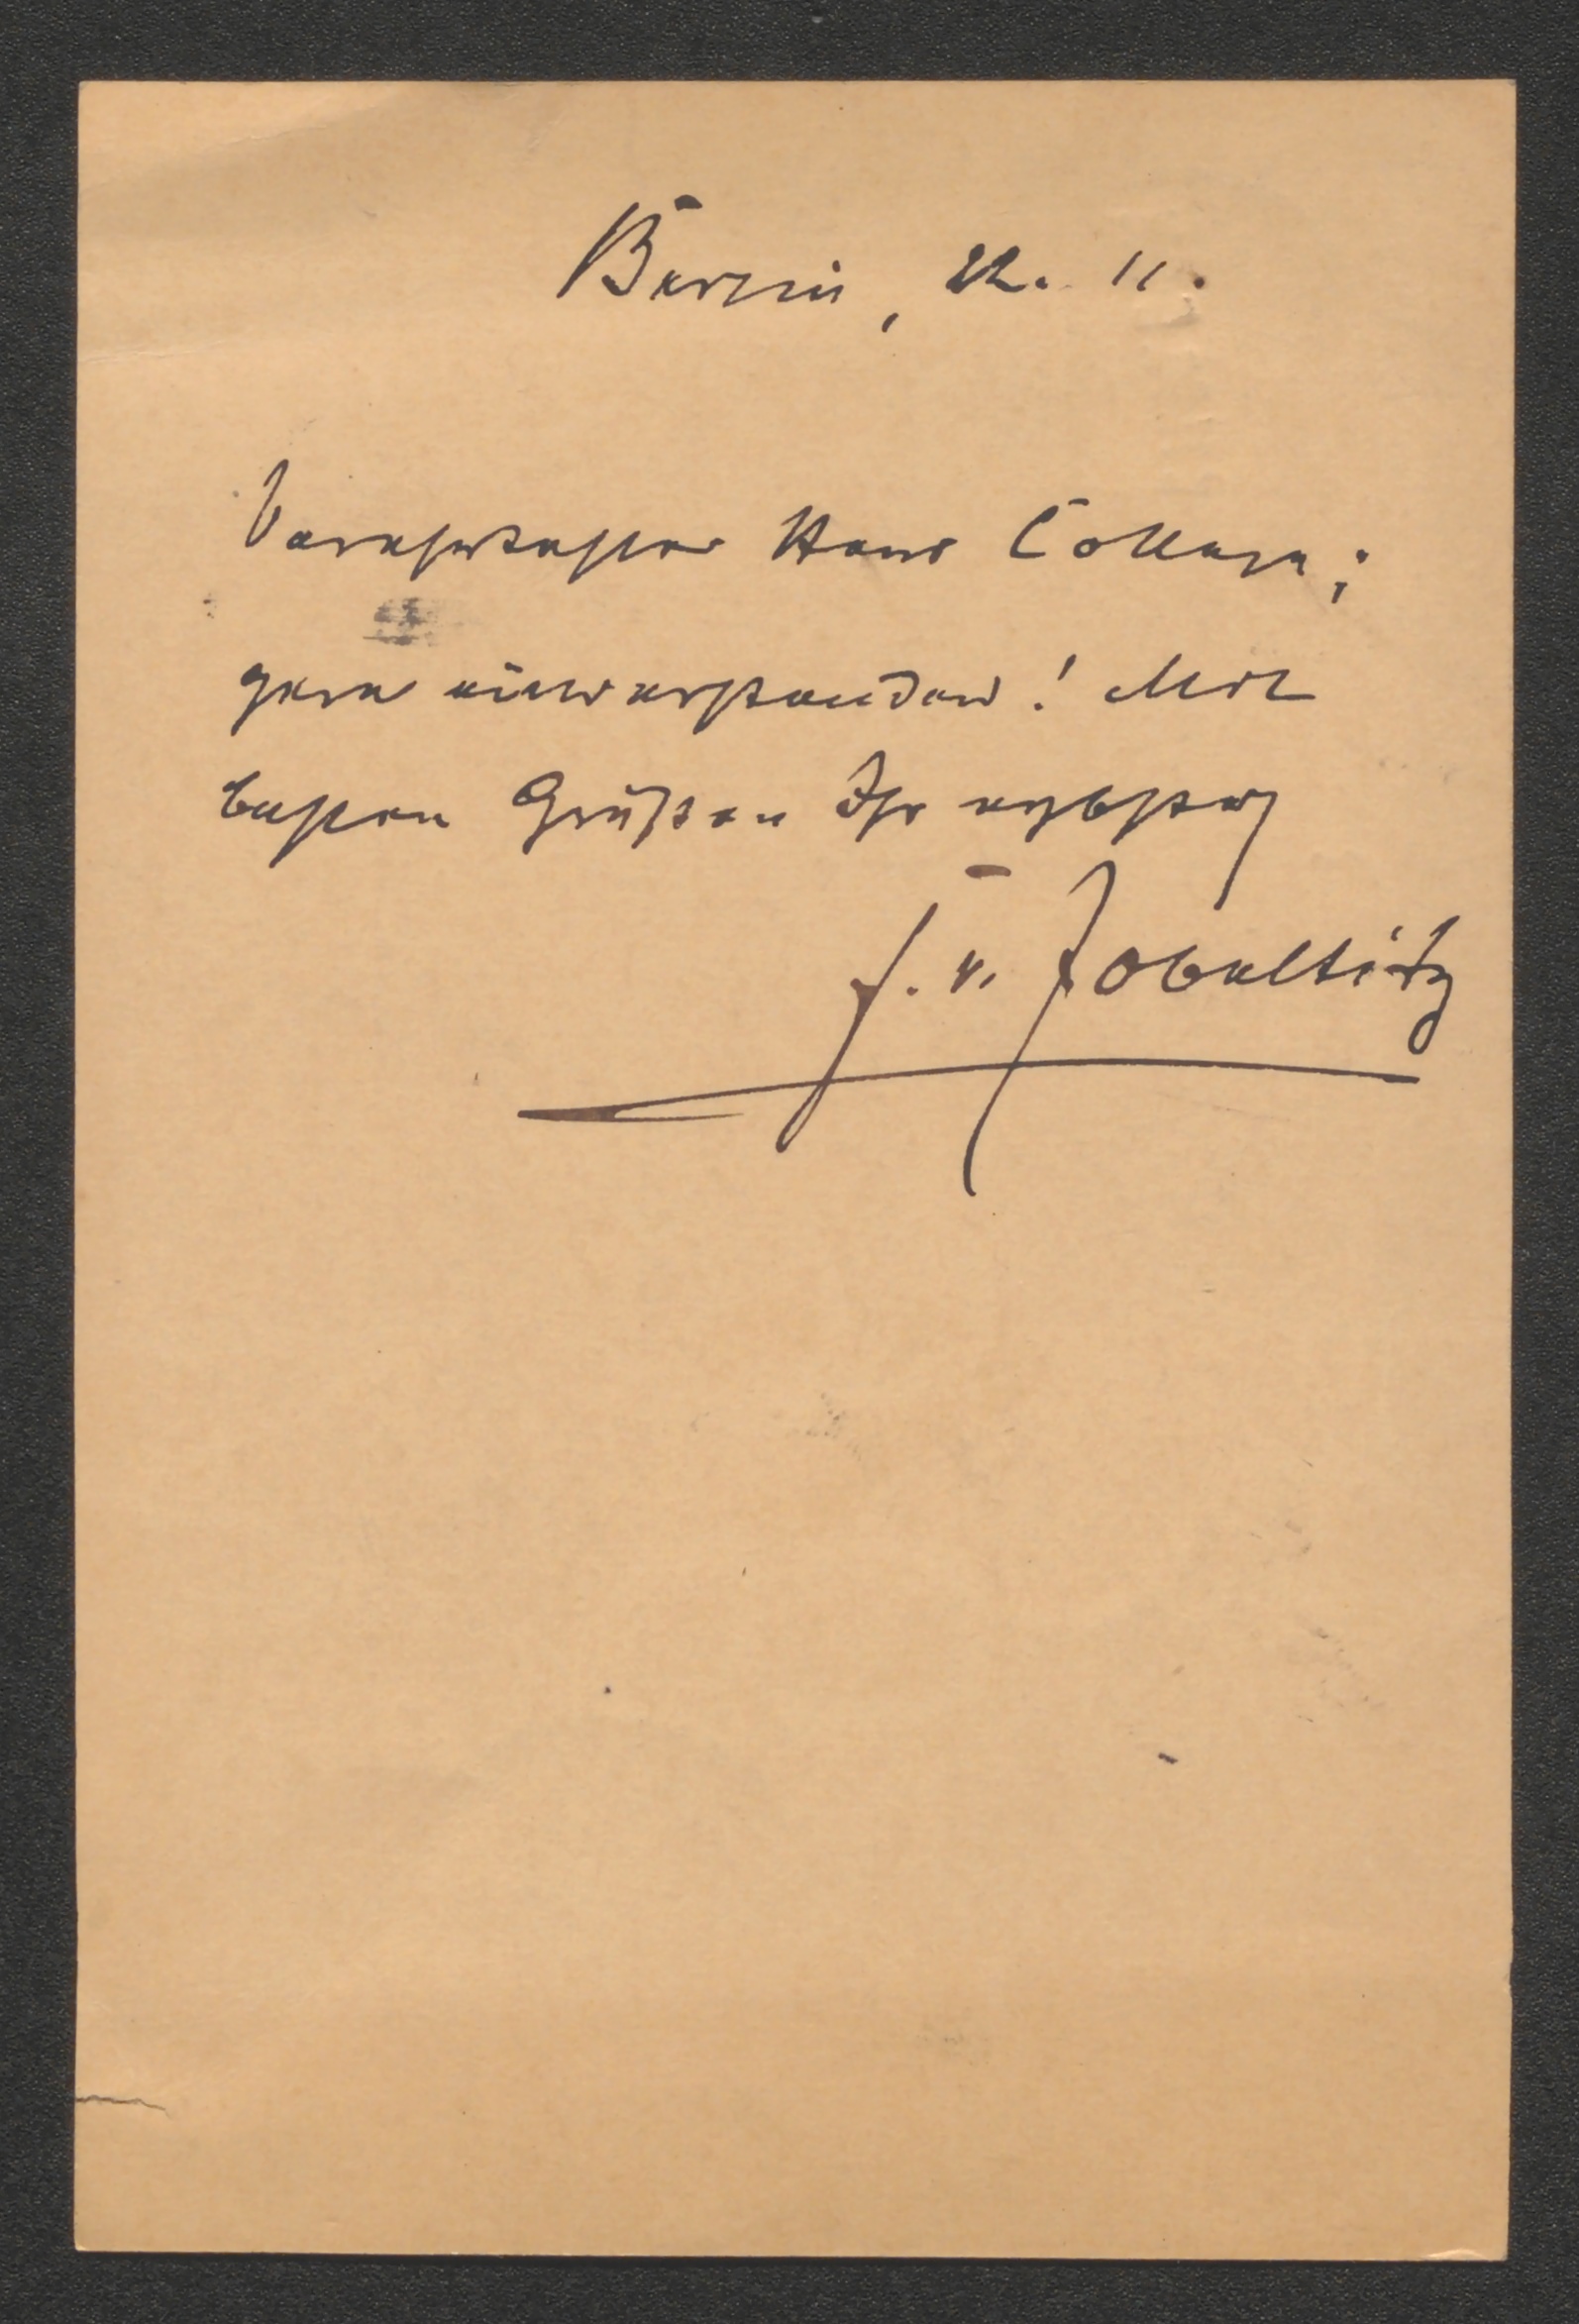 Berlin, 22. 11.
Verehrtester Herr College;
gern einverstanden! Mit
besten Grüßen Ihr ergbster
F. v. Zobeltitz